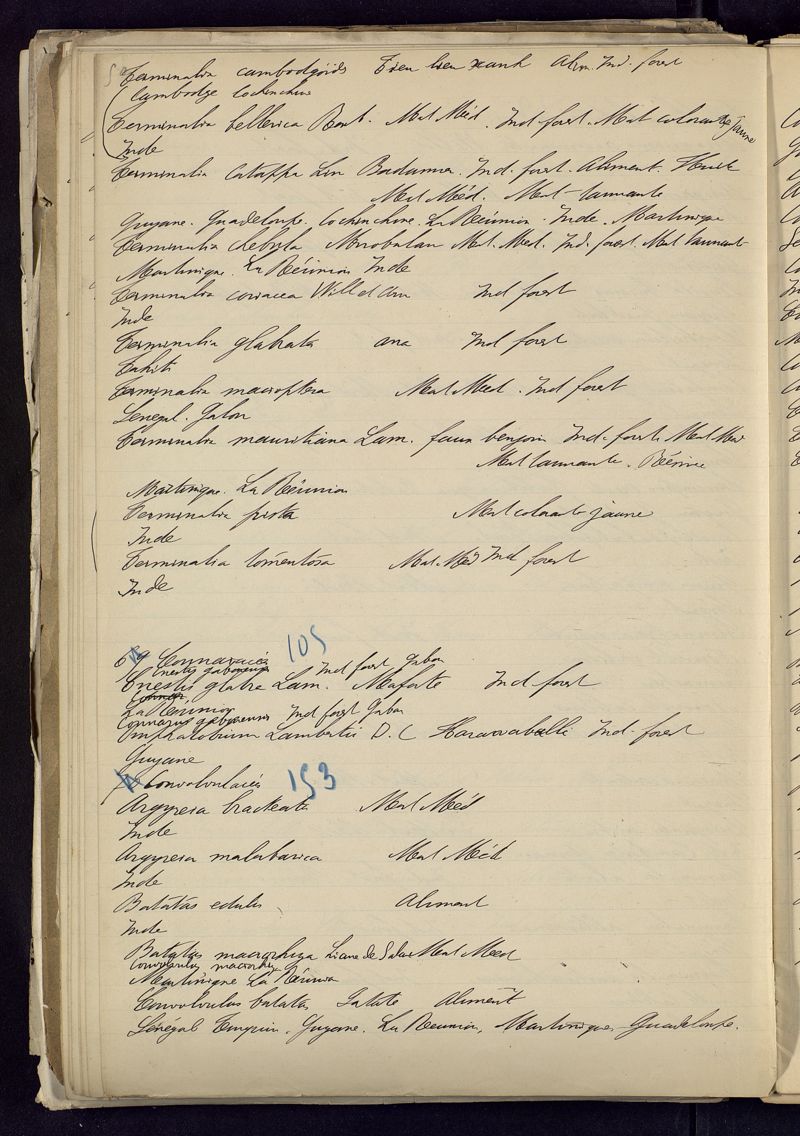 Terminalia cambodgiids Tieu lieu xanh Alim. Ind. forest
Cambodge Cochinchine
Terminalia bellerica Roxb. Mat Méd. Ind. forest. Mat colorante Jaune
Inde
Terminalia catappa Lin Badamier Ind. forest. Aliment. Huile
Mat. Méd. Mat tannante
Guyane. Guadeloupe. Cochinchine. La Réunion. Inde. Martinique
Terminalia chebula Mirobolan Mat. Méd. Ind. forest. Mat tannante
Martinique. La Réunion Inde
Terminalia coriacea Will et Arn Ind forest
Inde
Terminalia glabrata ana Ind forest
Tahiti
Terminalia macroptera Mat Méd. Ind forest
Sénégal. Gabon
Terminalia mauritiana Lam. faux benjoin Ind. forest. Mat Méd
Mat tannante. Résine
Martinique. La Réunion
Terminalia Mat colorante jaune
Inde
Terminalia tomentosa Mat. Méd Ind forest
Inde
Connaracées 105
Cnestis gabonensis Ind forest Gabon
Cnestis glabra Lam. Mafate Ind. forest
La Réunion
Connarus gabonensis Ind forest Gabon
Omphalobium Lambertii D. C Ind. forest
Guyane
Convolvulacées 153
Argyreia bracteata Mat Méd
Inde
Argyreia malabarica Mat Méd
Inde
Batatas edulis Aliment
Inde
Batatas macrorhiza Liane de Mat Méd
Convolvulus macrorhiz
Martinique La Réunion
Convolvulus batatas Patate Aliment
Sénégal Tonquin. Guyane. La Réunion, Martinique Guadeloupe.